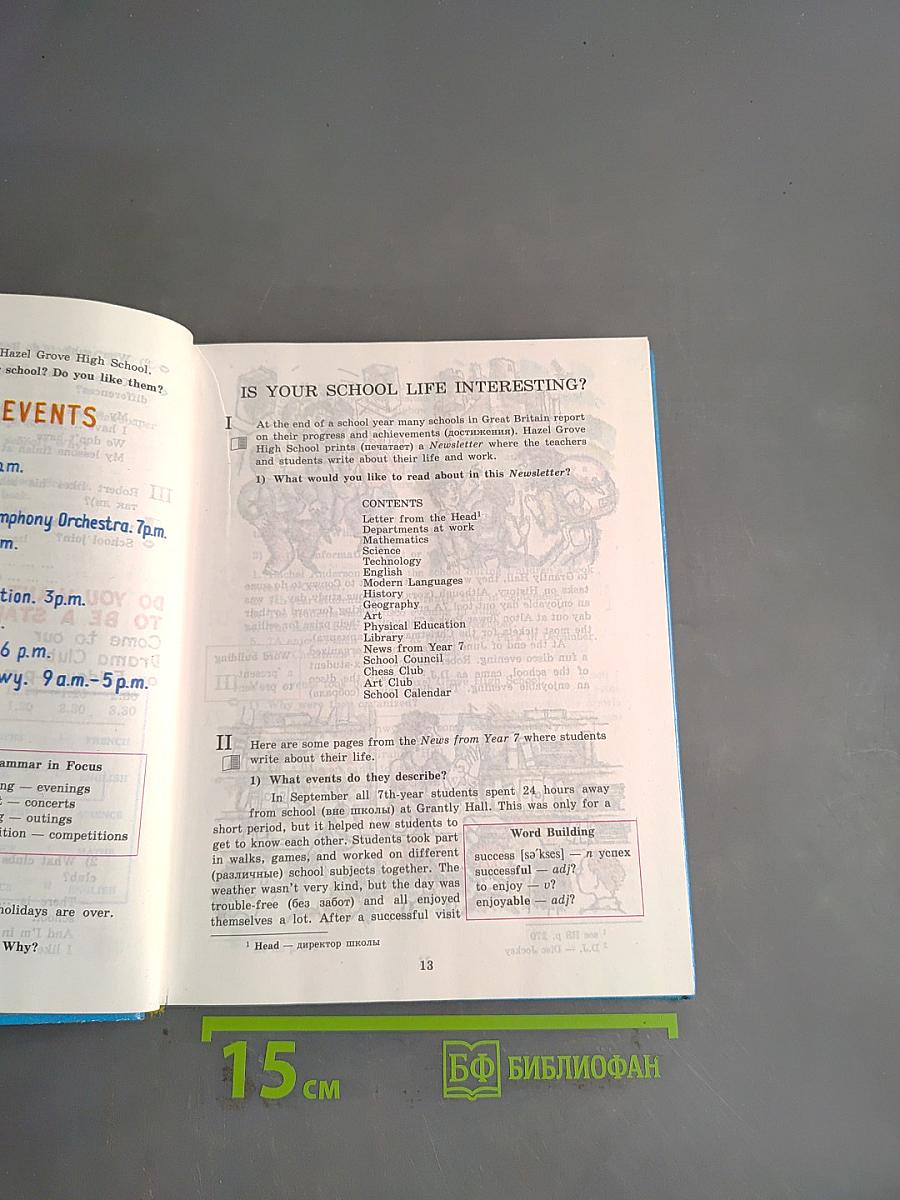 Hazel Grove High School.
school? Do you like them?
EVENTS
m.
mphony Orchestra. 7p.m.
m.
tion. 3p.m.
6 p.m.
wy. 9 a.m.-5 p.m.
ammar in Focus
ng — evenings
t — concerts
g — outings
ition — competitions
holidays are over.
Why?
IS YOUR SCHOOL LIFE INTERESTING?
I
At the end of a school year many schools in Great Britain report
on their progress and achievements (достижения). Hazel Grove
High School prints (печатает) a Newsletter where the teachers
and students write about their life and work.
1) What would you like to read about in this Newsletter?
CONTENTS
Letter from the Head¹
Departments at work
Mathematics
Science
Technology
English
Modern Languages
History
Geography
Art
Physical Education
Library
News from Year 7
School Council
Chess Club
Art Club
School Calendar
II
Here are some pages from the News from Year 7 where students
write about their life.
1) What events do they describe?
In September all 7th-year students spent 24 hours away
from school (вне школы) at Grantly Hall. This was only for a
short period, but it helped new students to
get to know each other. Students took part
in walks, games, and worked on different
(различные) school subjects together. The
weather wasn't very kind, but the day was
trouble-free (без забот) and all enjoyed
themselves a lot. After a successful visit
Word Building
success [sə´kses] — n успех
successful — adj?
to enjoy — v?
enjoyable — adj?
¹ Head — директор школы
13
15 см
БФ БИБЛИОФАН